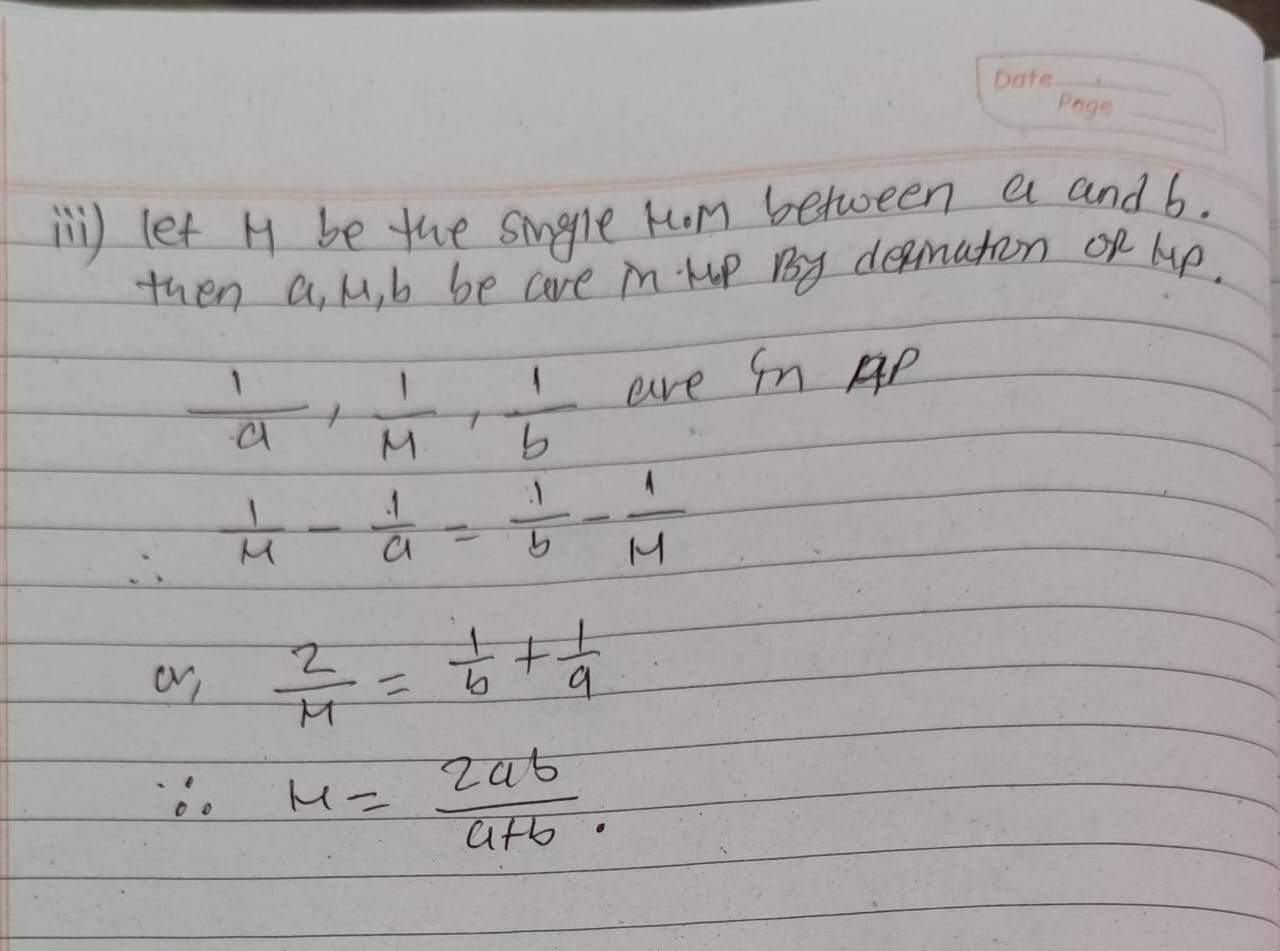 Date
Page
iii) let H be the single H.M between a and b.
then a, H, b be are in HP By defination of HP.
1/a , 1/H , 1/b are in AP
∴ 1/H - 1/a = 1/b - 1/H
or, 2/H = 1/b + 1/a
∴ H = 2ab/a+b .